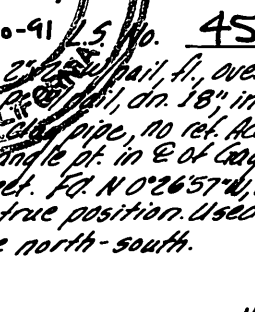 0-91 L.S. No. 45
nail, fl., over
dn. 18", in
pipe, no ref. Acc
angle pt. in ℄ of
et. Fd. N 0°26'57" W,
true position. Used
e north-south.
IFORNIA